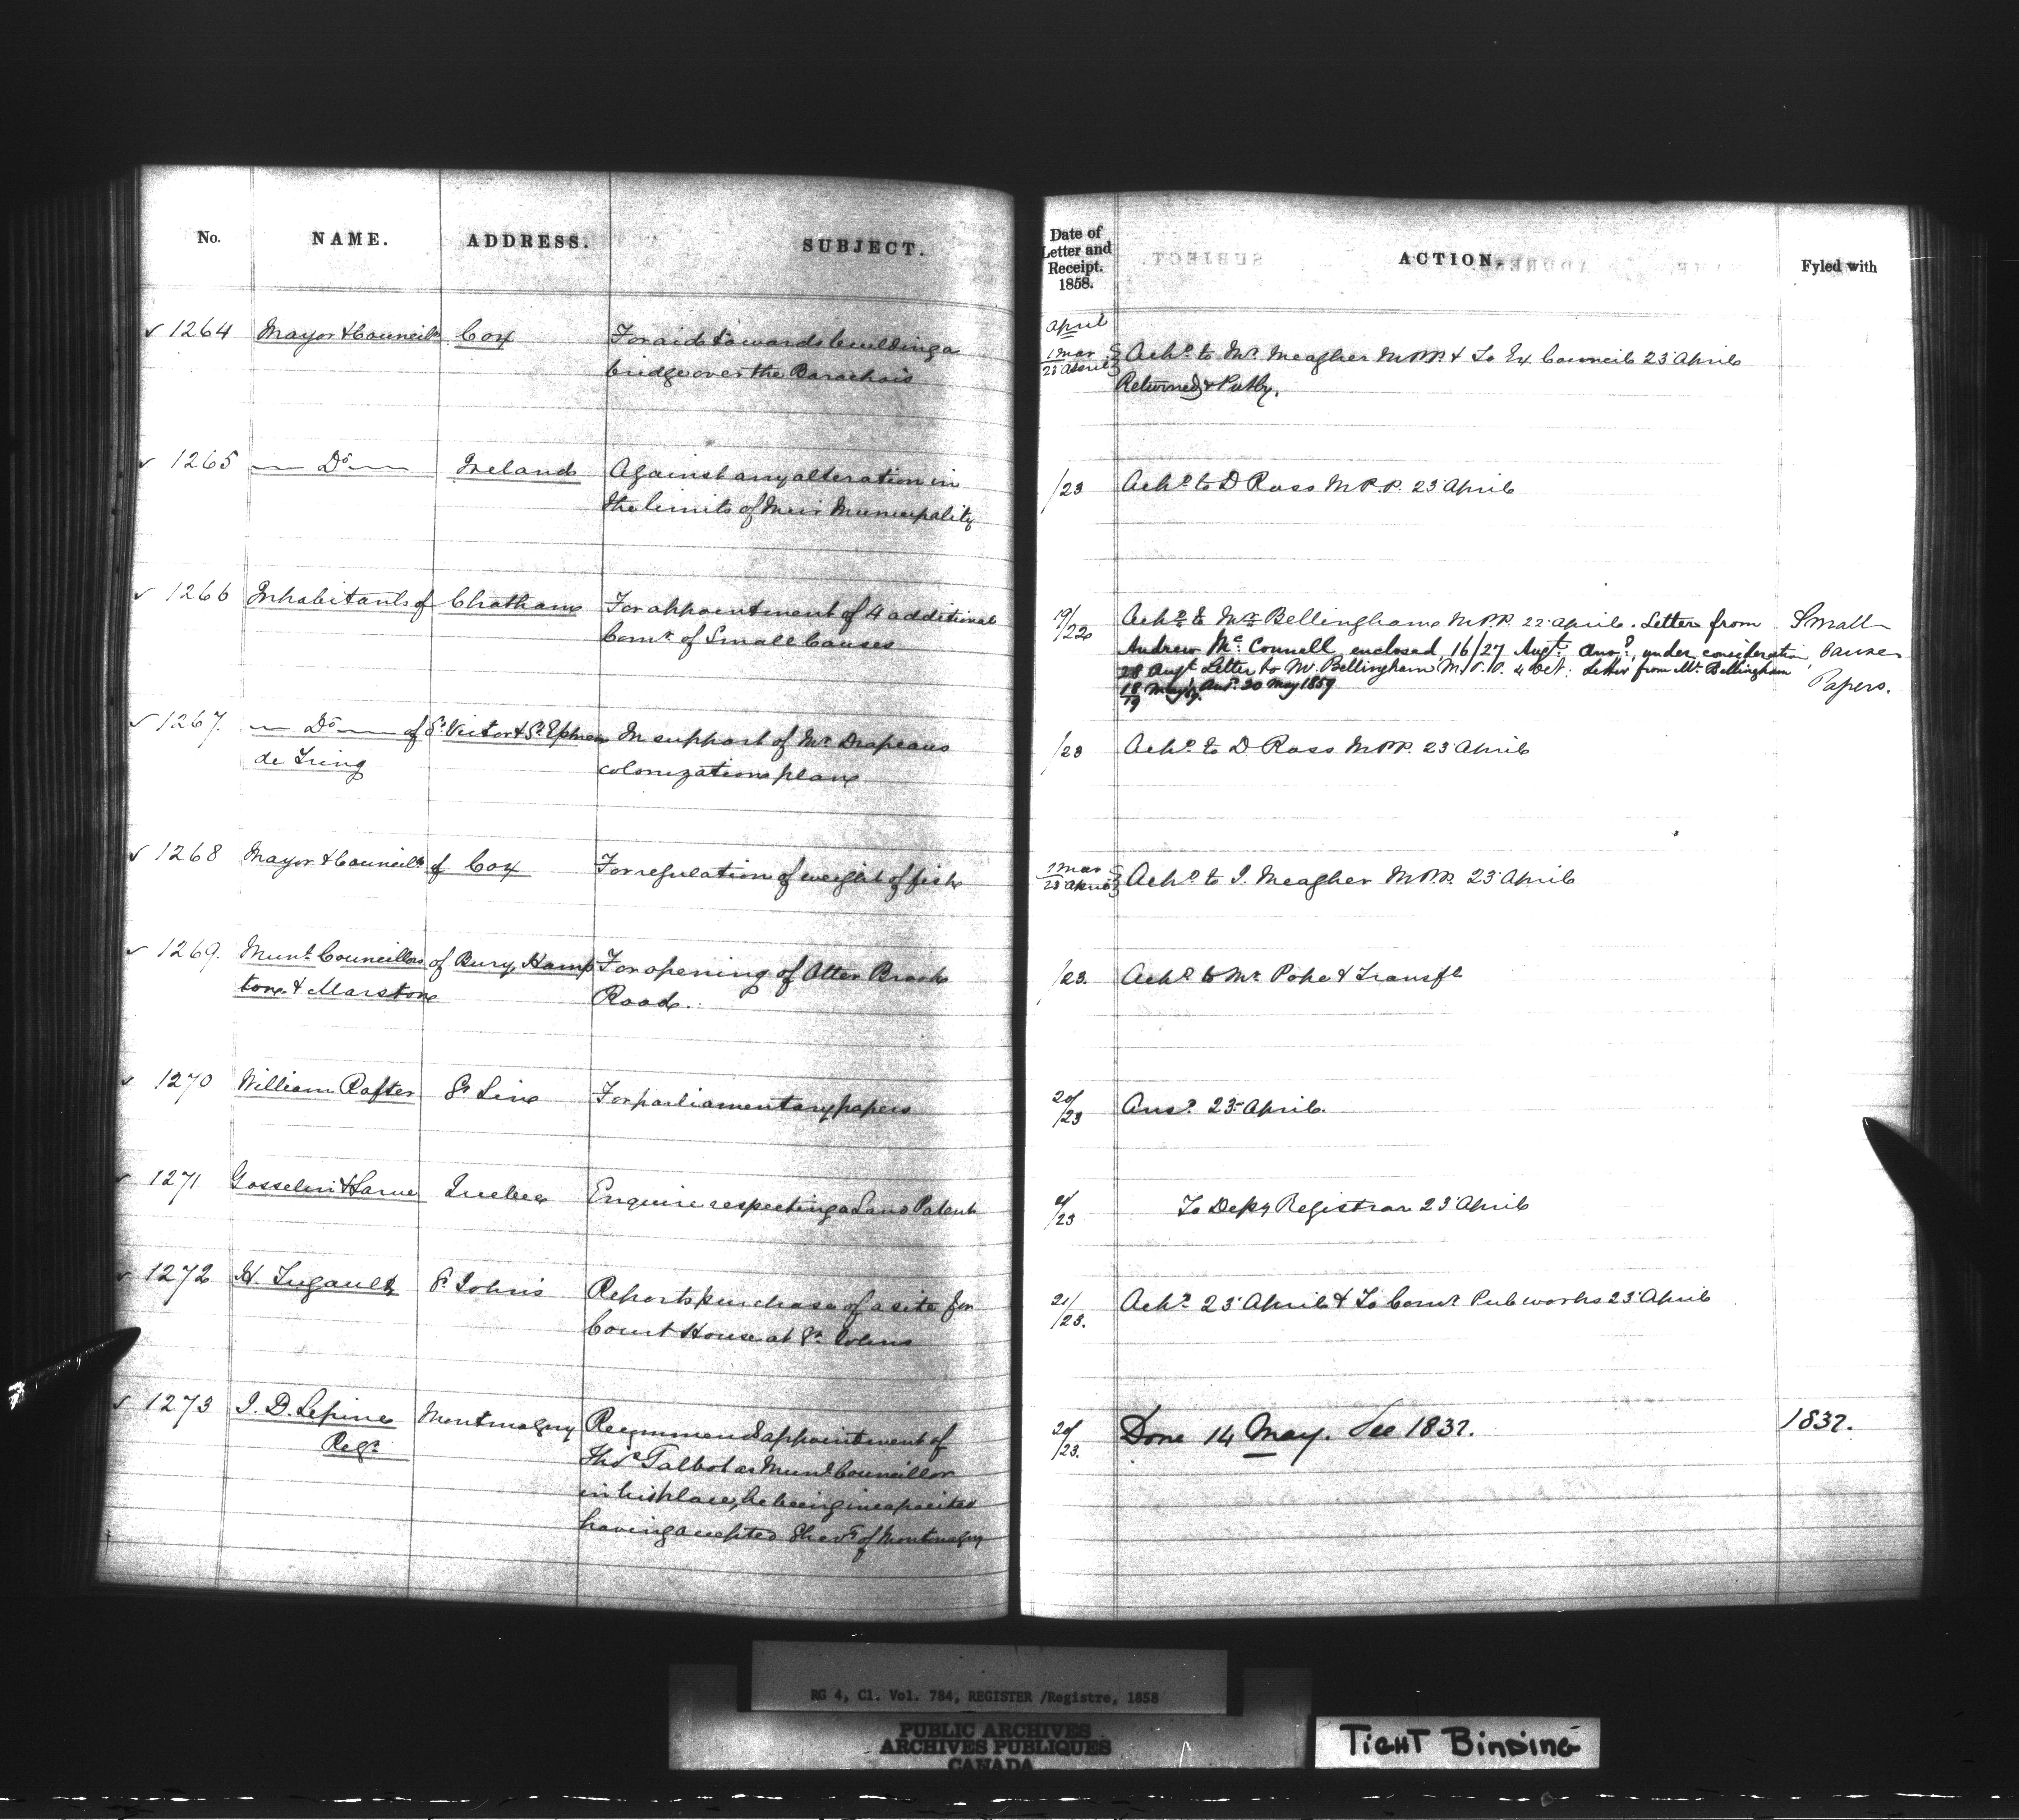 No. NAME. ADDRESS. SUBJECT.
Date of Letter and Receipt. 1858. ACTION. Fyled with
April
1264 Mayor & Councils Cox For aid towards building a
bridge over the Barachois
1 Mar
23 April
Ackd to Mr. Meagher M.P.P. & To Ex Council 23 April
Returned & Put by.
1265 Do Ireland Against any alteration in
the limits of their Municipality
/23 Ackd to D Ross M.P.P. 23 April
1266 Inhabitants of Chatham For appointment of 4 additional
Comrs of Small Causes
19/22 Ackd to Mr Bellingham M.P.P. 22 April. Letter from Small
Andrew Mc Connell enclosed 16/27 Augt. Ansd. under consideration Causes
28 Augt Letter to W. Bellingham M.P.P. 4 Oct. Letter from Mr. Bellingham Papers.
18/19 May. Ansd. 20 May 1859
1267. Do of St Victor & St. Ephrem In support of Mr Drapeaus
de Tring colonization plan
/23 Ackd to D Ross M.P.P. 23 April
1268 Mayor & Councils of Cox For regulation of weight of fish
1 Mar
23 April
Ackd to J. Meagher M.P.P. 23 April
1269. Munl Councillors of Bury, Hamp For opening of Otter Brook
ton & Marston Road.
/23. Ackd to Mr Pope & Transfd
1270 William Rafter St Lin For parliamentary papers
20/23 Ansd. 23 April.
1271 Gosselin & Larue Quebec Enquire respecting a Land Patent
/23 To Depy Registrar 23 April
1272 St Johns Reports purchase of a site for
Court House at St. Johns
21/23. Ackd 23 April & To Comr Pub works 23 April
1273 J. D. Lepine Montmagny Recommends appointment of
Thos Talbot as Munl Councillor
in his place, he being incapacited
having accepted of Montmagny
20/23. Done 14 May. See 1832. 1832.
RG 4, C1. Vol. 784, REGISTER /Registre, 1858
PUBLIC ARCHIVES
ARCHIVES PUBLIQUES
CANADA
TIGHT BINDING